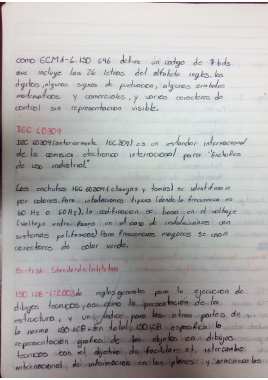 como ECMA-6. ISO 646 define un codigo de 7 bits
que incluye las 26 letras del alfabeto ingles, los
digitos, algunos signos de puntuacion, algunos simbolos
matematicos y comerciales, y varios caracteres de
control sin representacion visible.
IEC 60309
IEC 60309 (anteriormente IEC 309) es un estandar internacional
de la comision electronica internacional para "Enchufes
de uso industrial"
Los enchufes IEC 60309 (clavijas y tomas) se identifican
por colores. Para instalaciones tipicas (donde la frecuencia es
50 Hz o 60Hz), la codificacion se basa en el voltaje
(voltaje entre fases en el caso de instalaciones con
sistemas polifasicos) Para frecuencias mayores se usan
conectores de color verde.
British Standards Institution
ISO 128-1:2003 de reglas generales para la ejecucion de
dibujos tecnicos, asi como la presentacion de la
estructura, y un indice para las otras partes de
la norma ISO 128. En total, ISO 128 especifica la
representacion grafica de los objetos en dibujos
tecnicos con el objetivo de facilitar el intercambio
internacional de informacion en los planos y